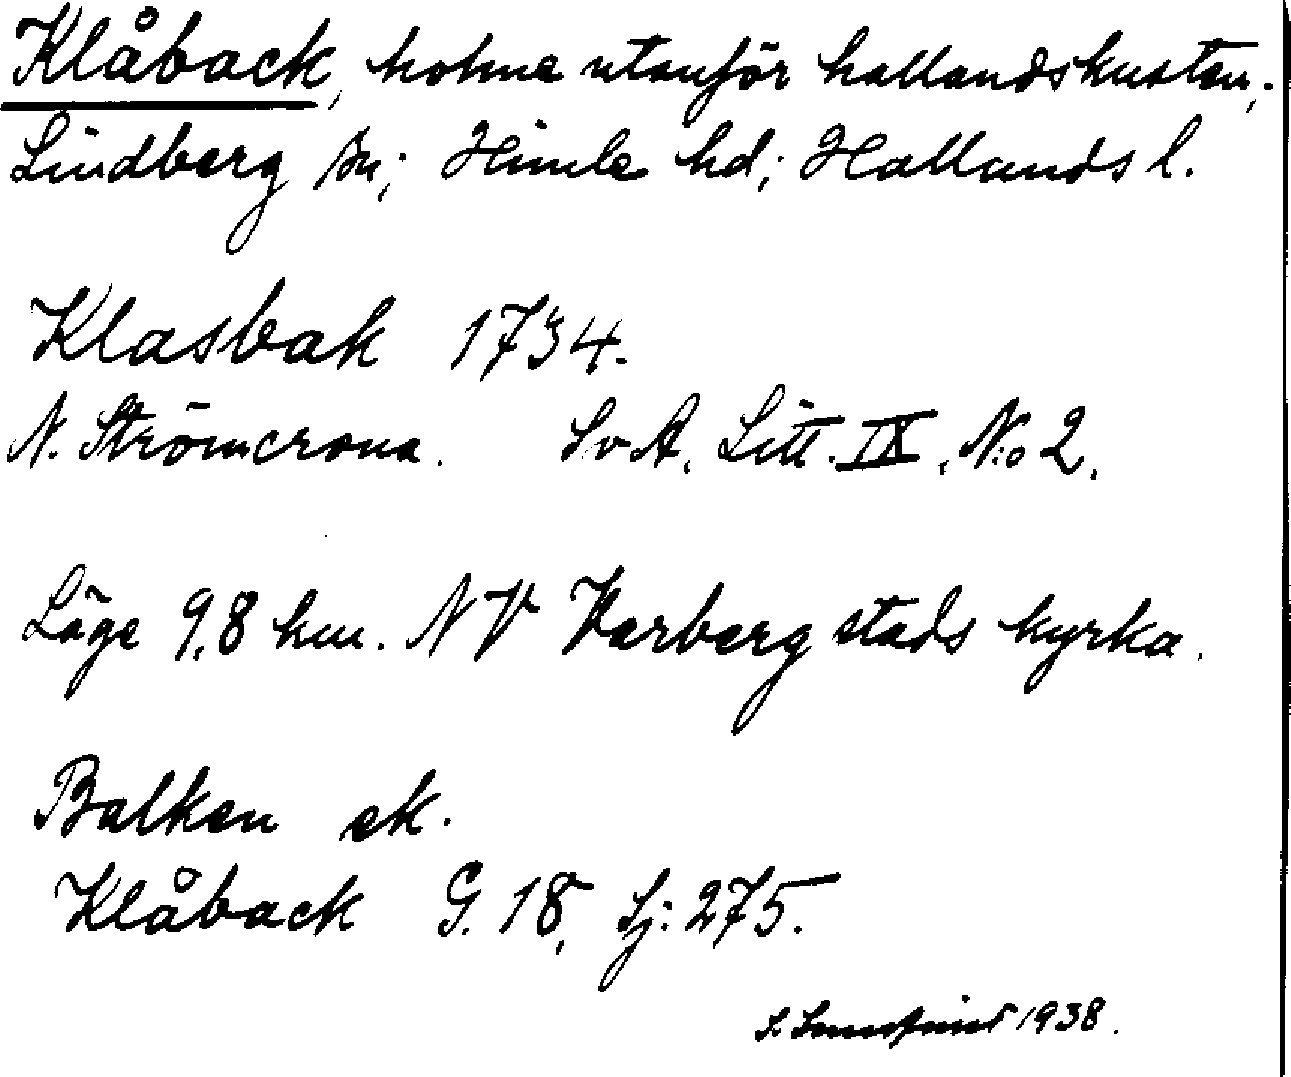 Klåback, holme utanför hallandskusten,.
Lindberg sn; Himle hd; Hallands l.
Klasbak 1734.
N. Strömcrona. SvA, Litt. IX, N:o 2.
Läge 9,8 km. NV Varberg stads kyrka.
Balken ek.
Klåback G. 18, Sj: 275.
1938.